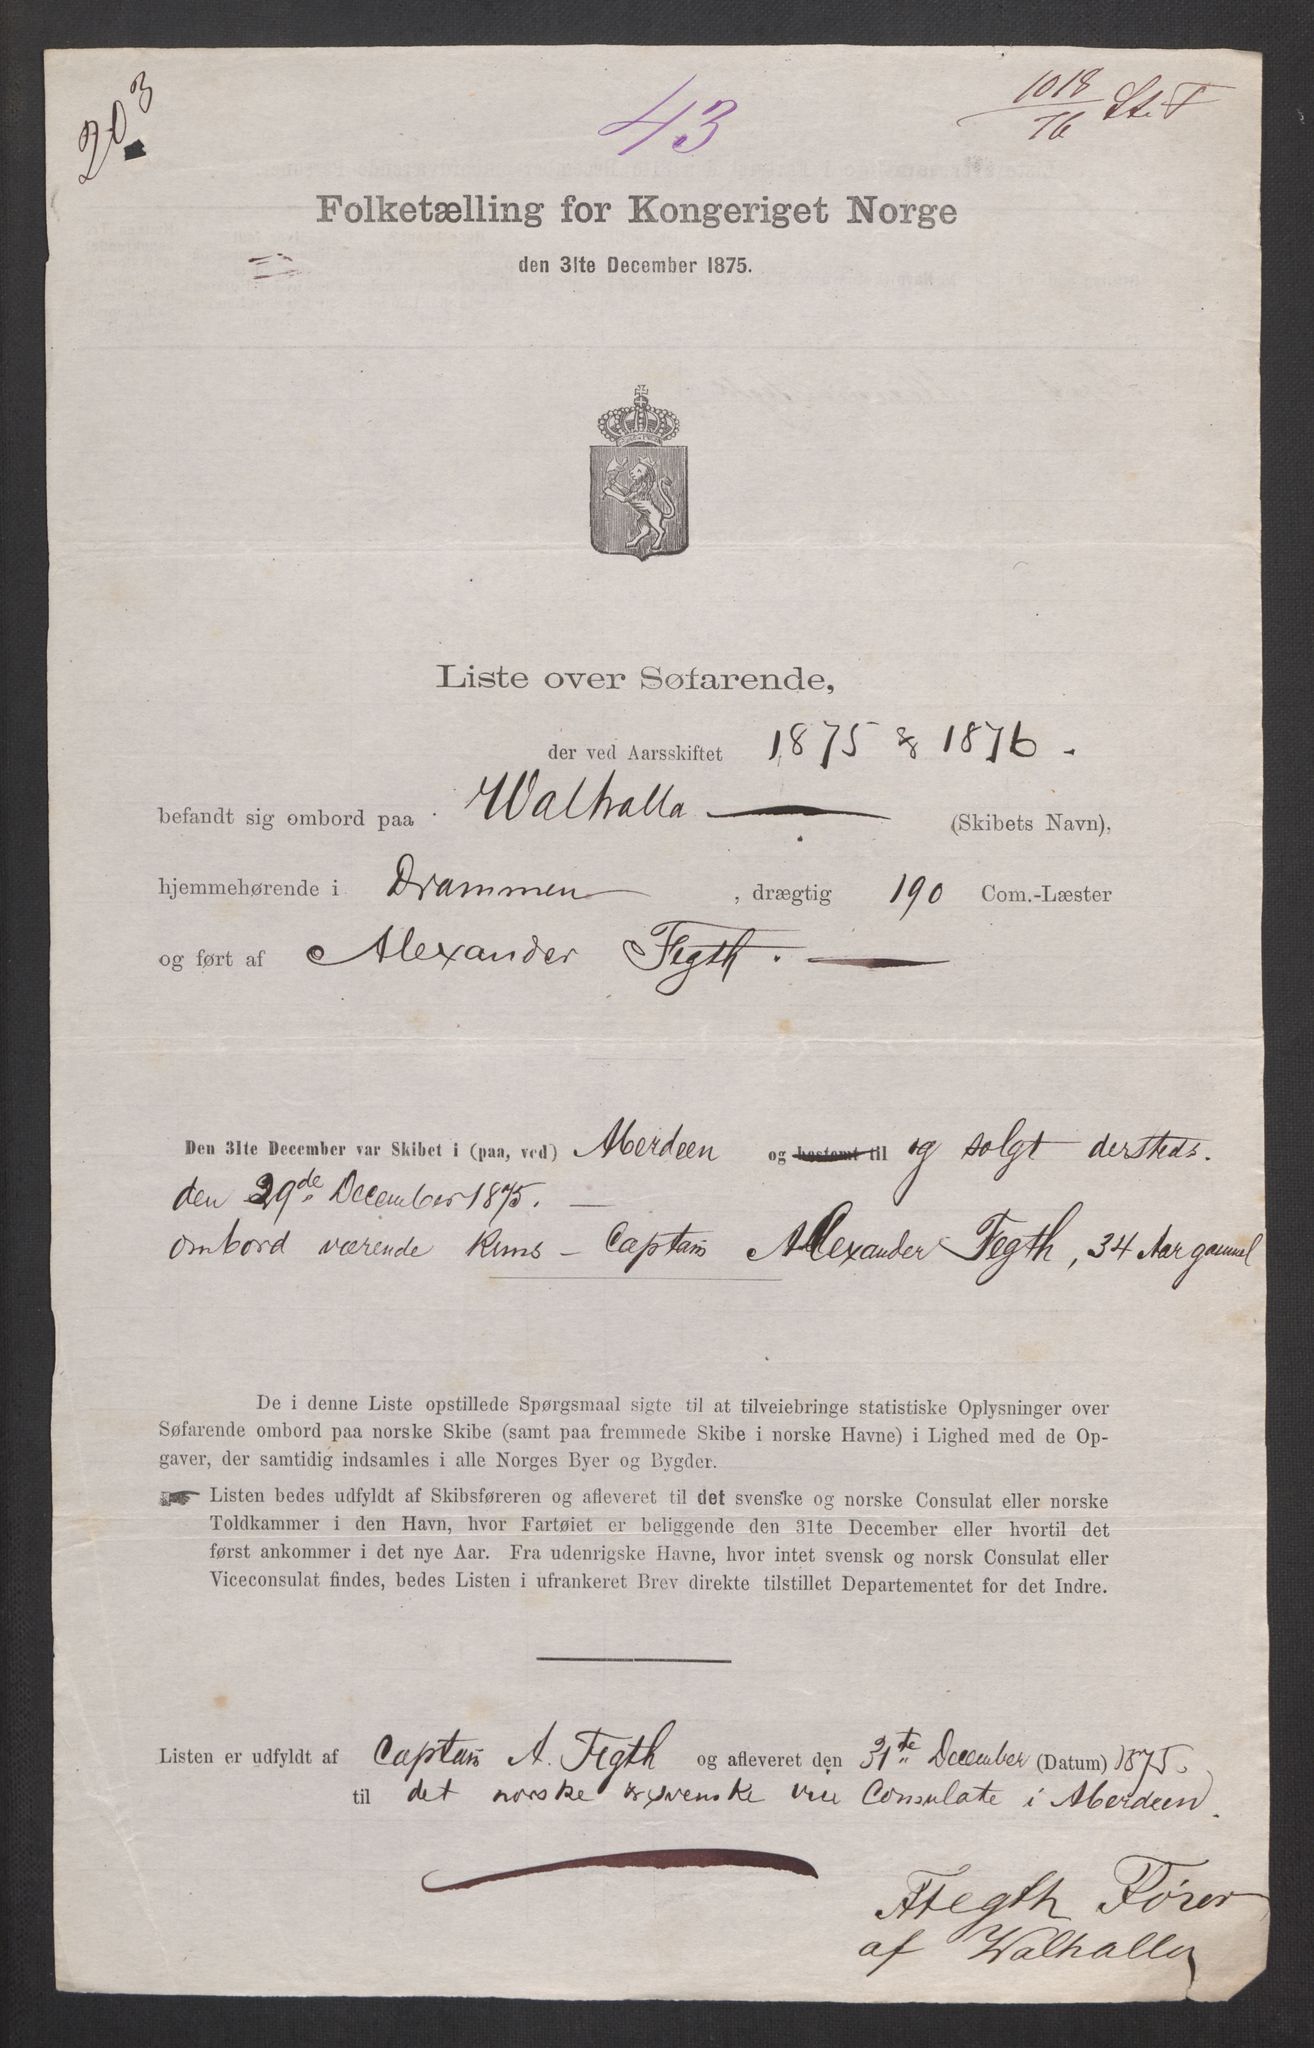 203
43
1018/76 St. T
Folketælling for Kongeriget Norge
den 31te December 1875.
Liste over Søfarende,
der ved Aarsskiftet 1875 & 1876.
befandt sig ombord paa Walhalla (Skibets Navn),
hjemmehørende i Drammen, drægtig 190 Com.-Læster
og ført af Alexander Fegth.
Den 31te December var Skibet i (paa, ved) Aberdeen og bestemt til og solgt dersteds.
den 29de December 1875.
ombord værende kuns - Captain Alexander Fegth, 34 Aar gammel
De i denne Liste opstillede Spørgsmaal sigte til at tilveiebringe statistiske Oplysninger over
Søfarende ombord paa norske Skibe (samt paa fremmede Skibe i norske Havne) i Lighed med de Op-
gaver, der samtidig indsamles i alle Norges Byer og Bygder.
Listen bedes udfyldt af Skibsføreren og afleveret til det svenske og norske Consulat eller norske
Toldkammer i den Havn, hvor Fartøiet er beliggende den 31te December eller hvortil det
først ankommer i det nye Aar. Fra udenrigske Havne, hvor intet svensk og norsk Consulat eller
Viceconsulat findes, bedes Listen i ufrankeret Brev direkte tilstillet Departementet for det Indre.
Listen er udfyldt af Captain A. Fegth og afleveret den 31te December (Datum) 1875.
til det norske & svenske vice Consulate i Aberdeen.
A Fegth Fører
af Walhalla